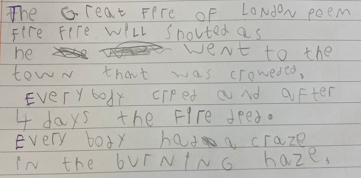 The Great Fire OF London poem
Fire Fire Will Shouted as
he went to the
town that was croweded,
Every body cried and after
4 days the Fire died.
Every body had a craze
in the burning haze,